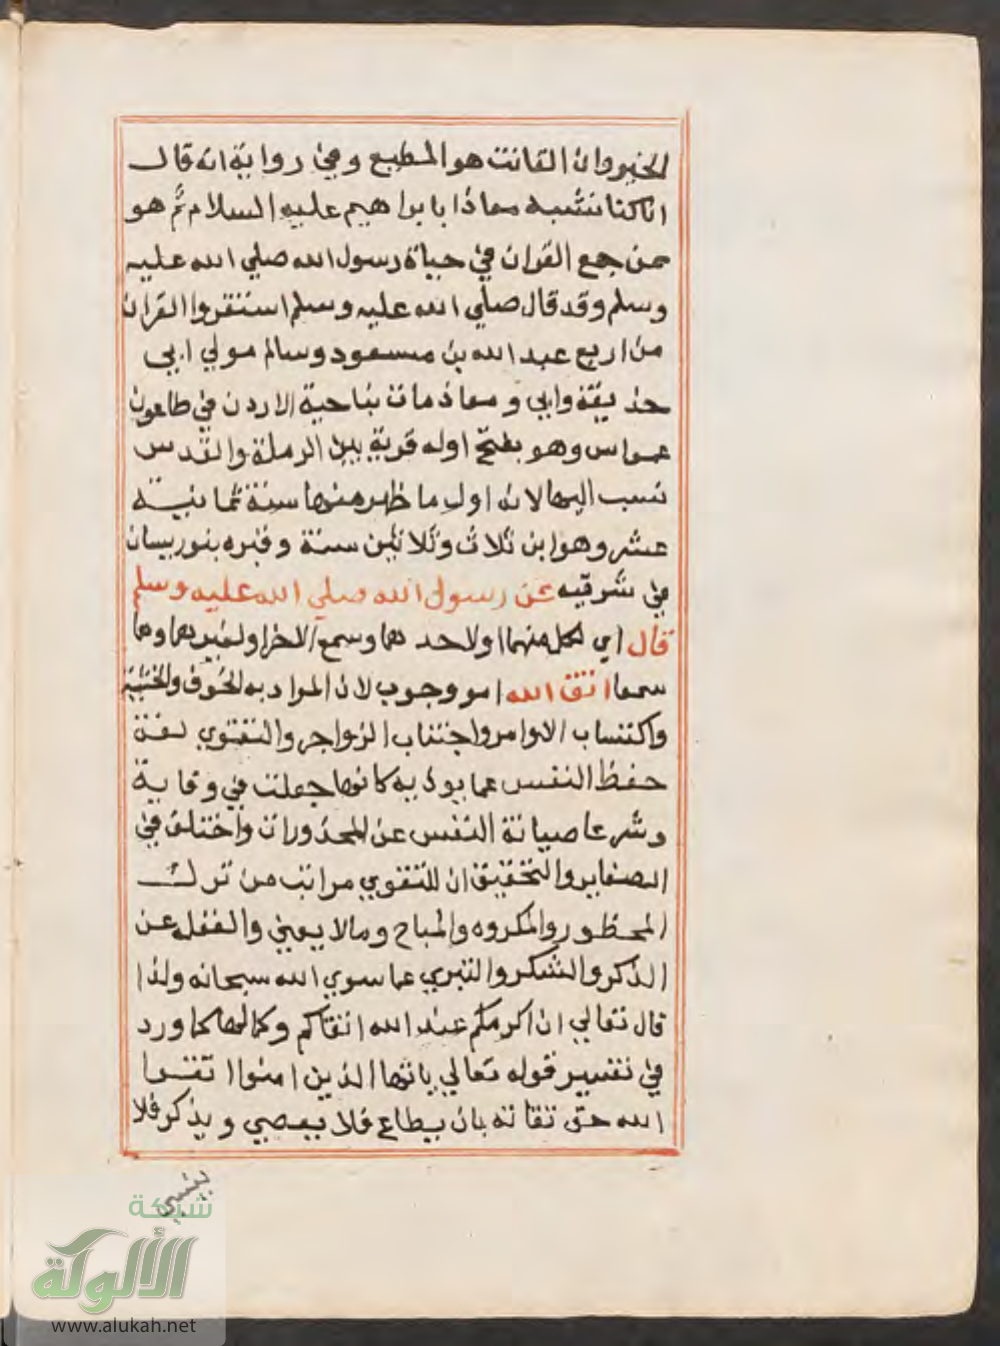 الخير وان القانت هو المطيع وفي رواية انه قال
انا كنا نشبه معاذا بابراهيم عليه السلام ثم هو
ممن جمع القران في حياة رسول الله صلي الله عليه
وسلم وقد قال صلي الله عليه وسلم استقروا القران
من اربع عبد الله بن مسعود وسالم مولي ابي
حذيفة وابي ومعاذ مات بناحية الاردن في طاعون
عمواس وهو بفتح اوله قرية بين الرملة والقدس
نسب اليها لانه اول ما ظهر منها سنة ثمانية
عشر وهو ابن ثلاث وثلاثين سنة وقبره بغور بيسان
في شرقيه عن رسول الله صلي الله عليه وسلم
قال اي لكل منهما او لاحدهما وسمع الاخر او لغيرهما وهما
سمعا اتق الله امر وجوب لان المراد به الخوف والخشية
واكتساب الاوامر واجتناب الزواجر والتقوي لغة
حفظ النفس عما يوذيه كانها جعلت في وقاية
وشرعا صيانة النفس عن المحذورات واختلف في
الصغاير والتحقيق ان للتقوي مراتب من ترك
المحظور والمكروه والمباح ومالا يعني والغفله عن
الذكر والشكر والتبري عما سوي الله سبحانه ولذا
قال تعالي ان اكرمكم عند الله اتقاكم وكمالها كما ورد
في تفسير قوله تعالي ياايها الذين امنوا اتقوا
الله حق تقاته بان يطاع فلا يعصي ويذكر فلا
ينسي
شبكة
الألوكة
www.alukah.net